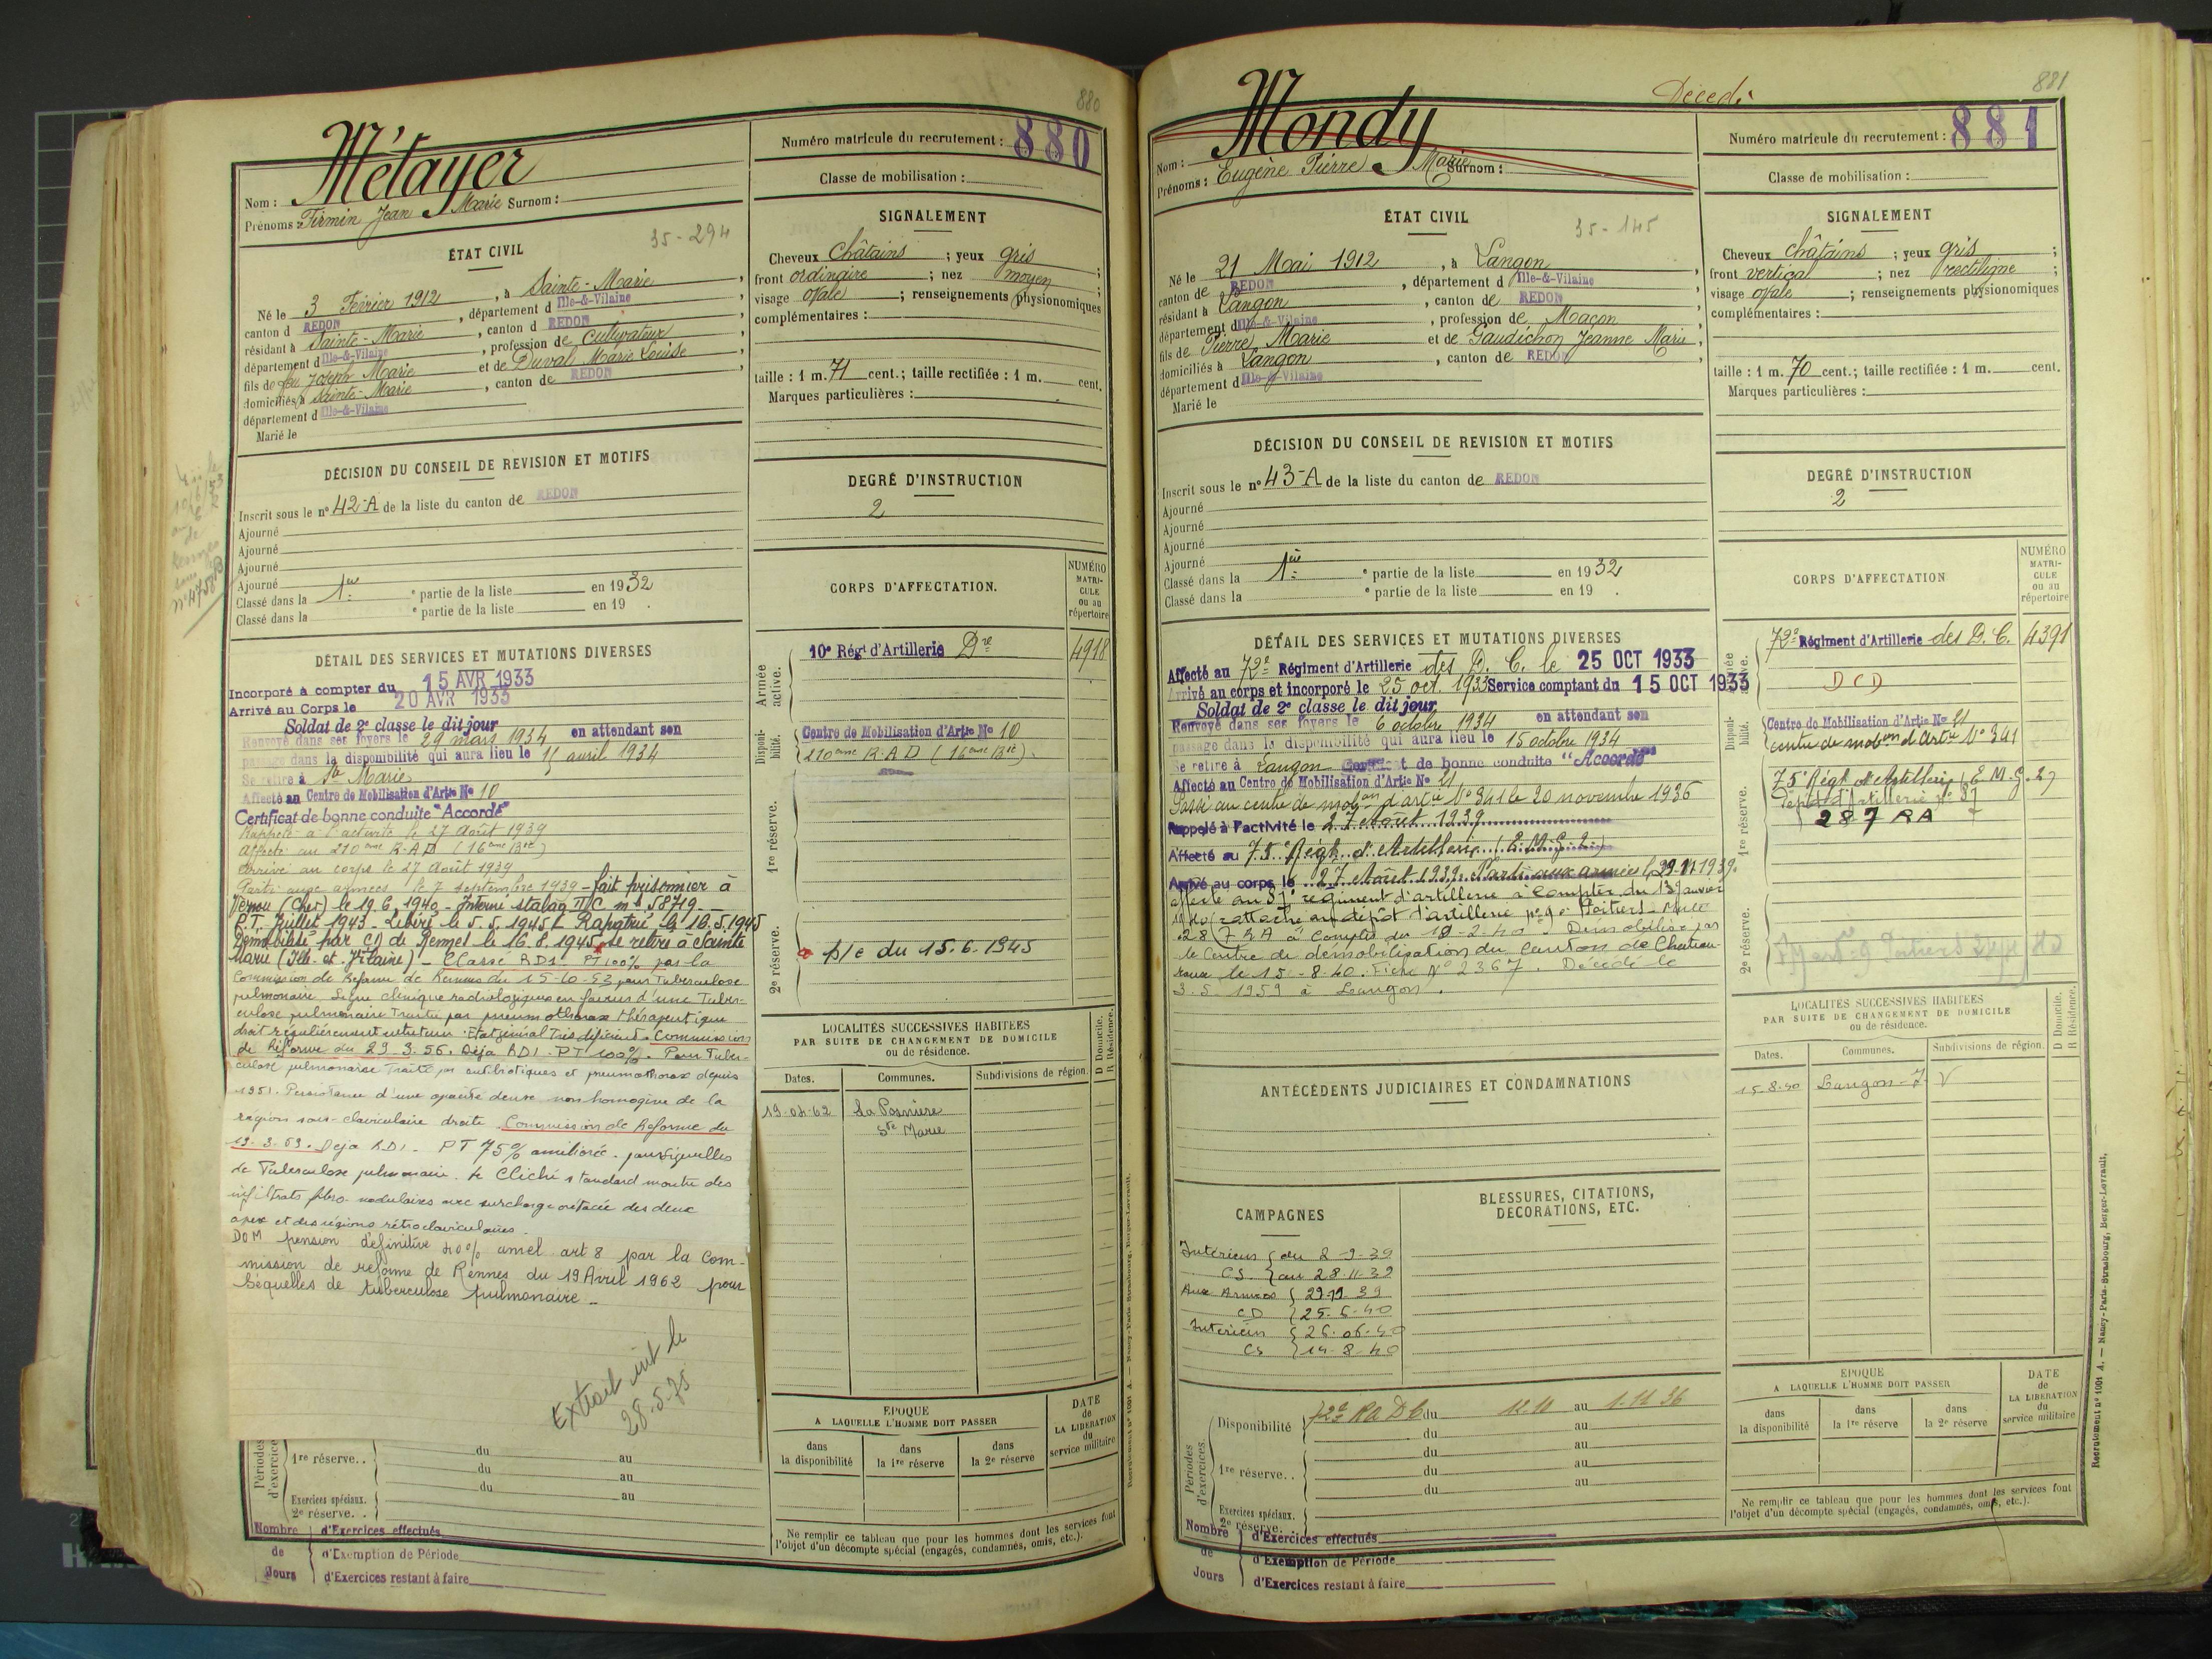 880
Métayer
Nom :
Prénoms : Firmin Jean Marie Surnom :
Numéro matricule du recrutement : 880
Classe de mobilisation :
ÉTAT CIVIL
35-294
Né le 3 Février 1912, à Sainte-Marie,
canton d REDON, département d Ille-&-Vilaine,
résidant à Sainte-Marie, canton d REDON,
département d Ille-&-Vilaine, profession de Cultivateur,
fils de feu Joseph Marie et de Duval Marie Louise,
domiciliés à Sainte-Marie, canton de REDON,
département d Ille-&-Vilaine
Marié le
SIGNALEMENT
Cheveux Châtains ; yeux gris ;
front ordinaire ; nez moyen ;
visage ovale ; renseignements physionomiques
complémentaires :
taille : 1 m. 71 cent.; taille rectifiée : 1 m. cent.
Marques particulières :
DÉCISION DU CONSEIL DE REVISION ET MOTIFS
Inscrit sous le n° 42-A de la liste du canton de REDON
Ajourné
Ajourné
Ajourné
Ajourné
Classé dans la 1re e partie de la liste en 1932
Classé dans la e partie de la liste en 19 .
DEGRÉ D'INSTRUCTION
2
DÉTAIL DES SERVICES ET MUTATIONS DIVERSES
Incorporé à compter du 15 AVR 1933
Arrivé au Corps le 20 AVR 1933
Soldat de 2e classe le dit jour
Renvoyé dans ses foyers le 29 mars 1934 en attendant son
passage dans la disponibilité qui aura lieu le 15 avril 1934
Se retire à Ste Marie
Affecté au Centre de Mobilisation d'Artie No 10
Certificat de bonne conduite "Accordé"
Rappelé à l'activité le 27 Août 1939
Affecté au 210eme R.A.D (16eme Bie)
Arrivé au corps le 27 Août 1939
Parti aux armées le 7 septembre 1939 - fait prisonnier à
Vénou (Cher) le 19.6.1940 - Interné stalag II C n° 58719
P.T. Juillet 1943 - Libéré le 5.5.1945 - Rapatrié le 16.5.1945
Démobilisé par CD de Rennes le 16.8.1945, se retire à Sainte
Marie (Ille-et-Vilaine) - Classé RD1 PT 100% par la
Commission de Réforme de Rennes du 15-10-53 pour Tuberculose
pulmonaire. Signe clinique radiologiques en faveur d'une Tuber-
culose pulmonaire Traitée par pneumothorax thérapeutique
droit régulièrement entretenu. Etat général Très déficient. Commission
de Réforme du 29.3.56. Déjà RD1 - PT 100%. Pour Tuber-
culose pulmonaire Traitée par antibiotiques et pneumothorax depuis
1951. Persistance d'une opacité dense non homogène de la
région sous-claviculaire droite. Commission de Réforme du
19.3.59. Déjà RD1 - PT 75% améliorée - pour séquelles
de Tuberculose pulmonaire. Le Cliché standard montre des
infiltrats fibro-nodulaires avec surcharge des deux
apex et des régions rétroclaviculaires.
DOM pension définitive 40% amel art 8 par la Com-
mission de réforme de Rennes du 19 Avril 1962 pour
Séquelles de tuberculose pulmonaire -
Extrait int le
28-5-75
CORPS D'AFFECTATION.
NUMÉRO MATRICULE ou au répertoire
Armée active.
10e Régt d'Artillerie Dre 4918
Disponibilité.
Centre de Mobilisation d'Artie No 10
210eme R.A.D (16eme Bie)
1re réserve.
2e réserve.
p/c du 15.6.1945
LOCALITÉS SUCCESSIVES HABITÉES
PAR SUITE DE CHANGEMENT DE DOMICILE
ou de résidence.
D Domicile.
R Résidence.
Dates. Communes. Subdivisions de région.
19-04-62
Ste Marie
ÉPOQUE
A LAQUELLE L'HOMME DOIT PASSER
dans la disponibilité
dans la 1re réserve
dans la 2e réserve
DATE de LA LIBÉRATION du service militaire
Ne remplir ce tableau que pour les hommes dont les services font
l'objet d'un décompte spécial (engagés, condamnés, omis, etc.).
Périodes d'exercices
1re réserve.. du au
du au
du au
Exercices spéciaux.
2e réserve..
Nombre de Jours
d'Exercices effectués
d'Exemption de Période
d'Exercices restant à faire
881
Décédé
Mondy
Nom :
Prénoms : Eugène Pierre Marie Surnom :
Numéro matricule du recrutement : 881
Classe de mobilisation :
ÉTAT CIVIL
35-145
Né le 21 Mai 1912, à Langon,
canton de REDON, département d Ille-&-Vilaine
résidant à Langon, canton de REDON
département d Ille-&-Vilaine, profession de Maçon,
fils de Pierre Marie et de Gaudichon Jeanne Marie,
domiciliés à Langon, canton de REDON
département d Ille-&-Vilaine
Marié le
SIGNALEMENT
Cheveux châtains ; yeux gris ;
front vertical ; nez rectiligne ;
visage ovale ; renseignements physionomiques
complémentaires :
taille : 1 m. 70 cent.; taille rectifiée : 1 m. cent.
Marques particulières :
DÉCISION DU CONSEIL DE REVISION ET MOTIFS
Inscrit sous le n° 43-A de la liste du canton de REDON
Ajourné
Ajourné
Ajourné
Ajourné
Classé dans la 1re e partie de la liste en 1932
Classé dans la e partie de la liste en 19 .
DEGRÉ D'INSTRUCTION
2
DÉTAIL DES SERVICES ET MUTATIONS DIVERSES
Affecté au 72e Régiment d'Artillerie des D. C. le 25 OCT 1933
Arrivé au corps et incorporé le 25 oct. 1933 Service comptant du 15 OCT 1933
Soldat de 2e classe le dit jour
Renvoyé dans ses foyers le 6 octobre 1934 en attendant son
passage dans la disponibilité qui aura lieu le 15 octobre 1934
Se retire à Langon Certificat de bonne conduite "Accordé"
Affecté au Centre de Mobilisation d'Artie No 21
Passé au centre de mobon d'artie No 341 le 20 novembre 1936
Rappelé à l'activité le 27 Août 1939
Affecté au 75e Régt d'Artillerie (E.M.G.2)
Arrivé au corps le 27 Août 1939. Parti aux armées le 29.11.1939.
affecté au 37e régiment d'artillerie à compter du 13 janvier
1940 (rattaché au dépôt d'artillerie no 9 Poitiers - Muté
287 RA à compter du 10-2-40 - Démobilisé par
le Centre de démobilisation du canton de Chateau-
roux le 15-8-40. Fiche No 2367. Décédé le
3.5.1959 à Langon.
CORPS D'AFFECTATION
NUMÉRO MATRICULE ou au répertoire
Armée active.
72e Régiment d'Artillerie des D. C. 4391
DCD
Disponibilité.
Centre de Mobilisation d'Artie No 21
centre de mobon d'Artie No 341
1re réserve.
75e Régt d'Artillerie (E.M.G.2)
Dépôt d'Artillerie no 37
287 RA
2e réserve.
ANTÉCÉDENTS JUDICIAIRES ET CONDAMNATIONS
LOCALITÉS SUCCESSIVES HABITÉES
PAR SUITE DE CHANGEMENT DE DOMICILE
ou de résidence.
D Domicile.
R Résidence.
Dates. Communes. Subdivisions de région.
15-8-40 Langon
CAMPAGNES
Intérieur du 2-9-39
CS au 28-11-39
Aux Armées 29-11-39
CD 25-6-40
Intérieur 26-06-40
CS 14-8-40
BLESSURES, CITATIONS,
DÉCORATIONS, ETC.
Périodes d'exercices.
Disponibilité 72e RA DC du 12.11 au 1.12.36
du au
du au
1re réserve.. du au
du au
Exercices spéciaux.
2e réserve.
Nombre de Jours
d'Exercices effectués
d'Exemption de Période
d'Exercices restant à faire
ÉPOQUE
A LAQUELLE L'HOMME DOIT PASSER
dans la disponibilité
dans la 1re réserve
dans la 2e réserve
DATE de LA LIBÉRATION du service militaire
Ne remplir ce tableau que pour les hommes dont les services font
l'objet d'un décompte spécial (engagés, condamnés, omis, etc.).
Recrutement n° 1001 A. — Nancy-Paris-Strasbourg, Berger-Levrault.